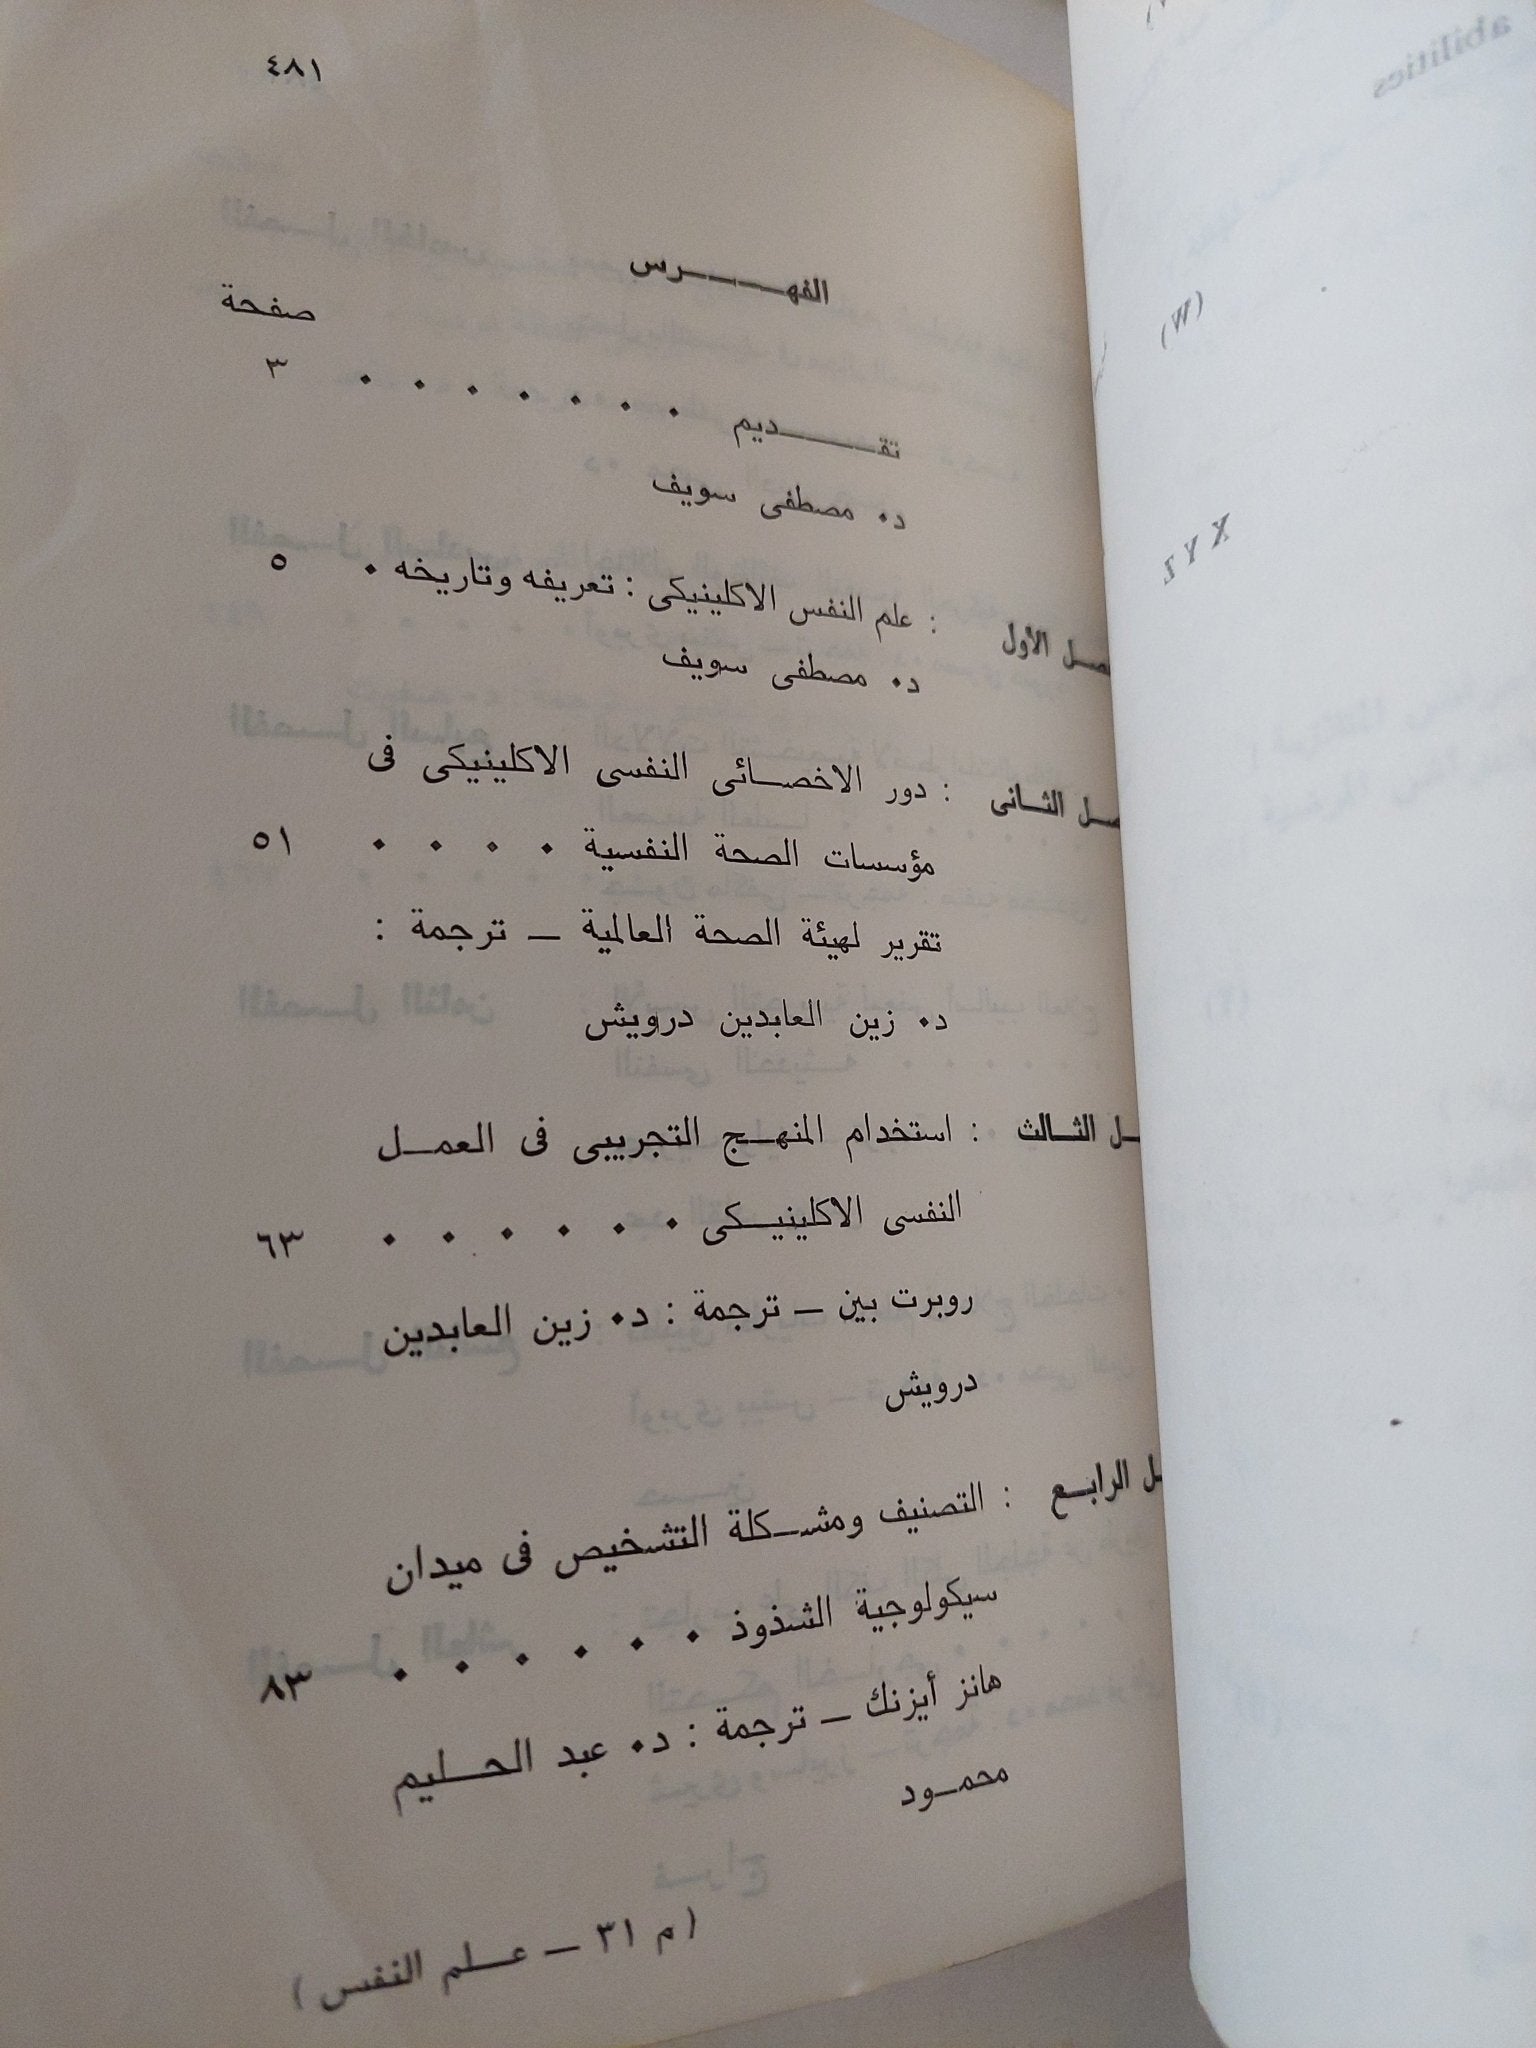 ٤٨١
الفهـــــرس
صفحة
تقــــــديم • • • • • • • ٣
د• مصطفى سويف
صل الأول : علم النفس الاكلينيكى : تعريفه وتاريخه • ٥
د• مصطفى سويف
صل الثانى : دور الاخصائى النفسى الاكلينيكى فى
مؤسسات الصحة النفسية • • • • ٥١
تقرير لهيئة الصحة العالمية — ترجمة :
د• زين العابدين درويش
ـل الثالث : استخدام المنهج التجريبى فى العمل
النفسى الاكلينيكى • • • • • • ٦٣
روبرت بين — ترجمة : د• زين العابدين
درويش
ـل الرابع : التصنيف ومشكلة التشخيص فى ميدان
سيكولوجية الشذوذ • • • • • • ٨٣
هانز أيزنك — ترجمة : د• عبد الحليم
محمود
( م ٣١ — علم النفس )
abilities
(W)
X Y Z